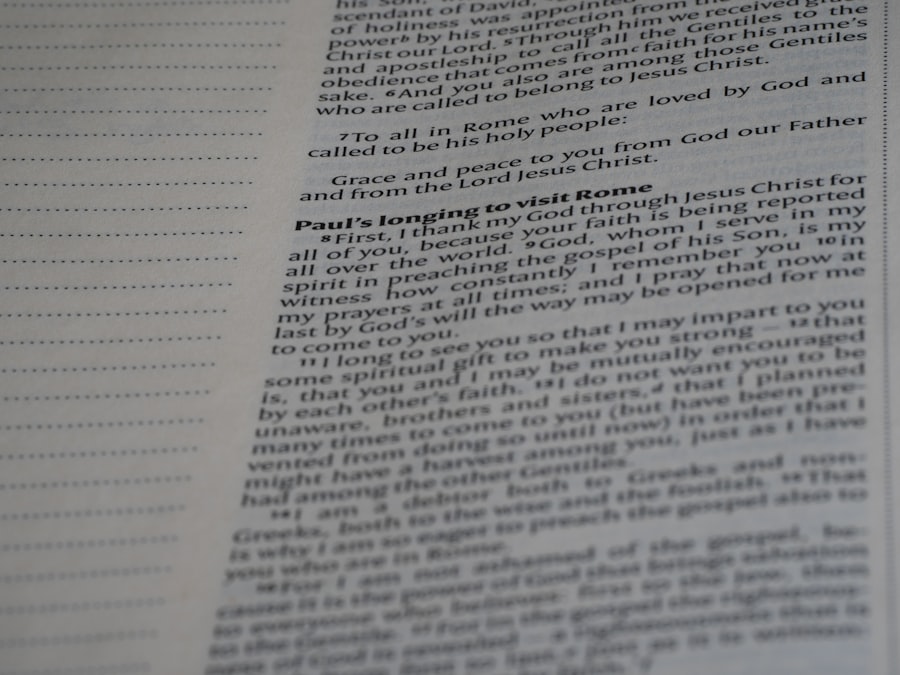 his Son, who
scendant of David,
of holiness was appointed
power b by his resurrection from the
Christ our Lord. 5 Through him we received grace
and apostleship to call all the Gentiles to the
obedience that comes from c faith for his name's
sake. 6 And you also are among those Gentiles
who are called to belong to Jesus Christ.
7 To all in Rome who are loved by God and
called to be his holy people:
Grace and peace to you from God our Father
and from the Lord Jesus Christ.
Paul's longing to visit Rome
8 First, I thank my God through Jesus Christ for
all of you, because your faith is being reported
all over the world. 9 God, whom I serve in my
spirit in preaching the gospel of his Son, is my
witness how constantly I remember you 10 in
my prayers at all times; and I pray that now at
last by God's will the way may be opened for me
to come to you.
11 I long to see you so that I may impart to you
some spiritual gift to make you strong – 12 that
is, that you and I may be mutually encouraged
by each other's faith. 13 I do not want you to be
unaware, brothers and sisters, d that I planned
many times to come to you (but have been pre-
vented from doing so until now) in order that I
might have a harvest among you, just as I have
had among the other Gentiles.
14 I am a debtor both to Greeks and non-
Greeks, both to the wise and the foolish. 15 That
is why I am so eager to preach the gospel also to
you who are in Rome.
16 For I am not ashamed of the gospel, be-
cause it is the power of God that brings salvation
to everyone who believes: first to the Jew, then
to the Gentile. 17 For in the gospel the righteous-
ness of God is revealed – a righteousness that is